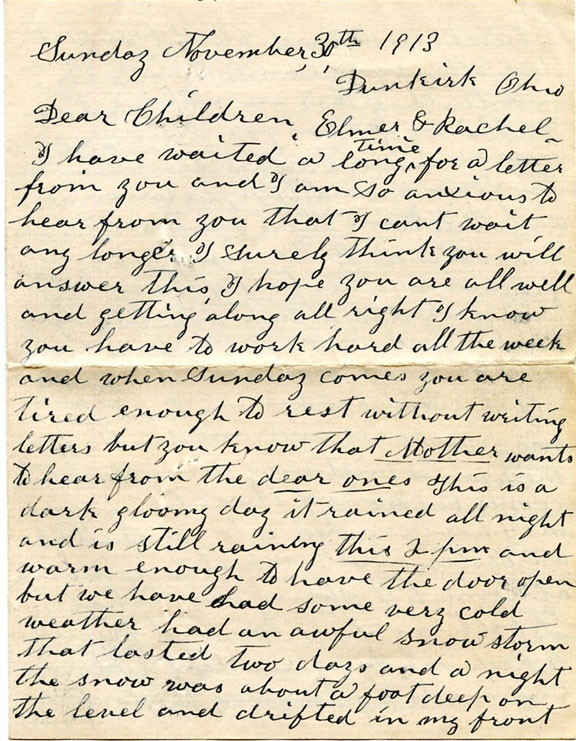 Sunday November, 30th 1913
Dunkirk Ohio
Dear Children, Elmer & Rachel-
I have waited a long time for a letter
from you and I am so anxious to
hear from you that I cant wait
any longer I surely think you will
answer this, I hope you are all well
and getting along all right I know
you have to work hard all the week
and when Sunday comes you are
tired enough to rest without writing
letters but you know that Mother wants
to hear from the dear ones This is a
dark gloomy day it rained all night
and is still raining this 2 pm and
warm enough to have the door open
but we have had some very cold
weather had an awful snow storm
that lasted two days and a night
the snow was about a foot deep on
the level and drifted in my front